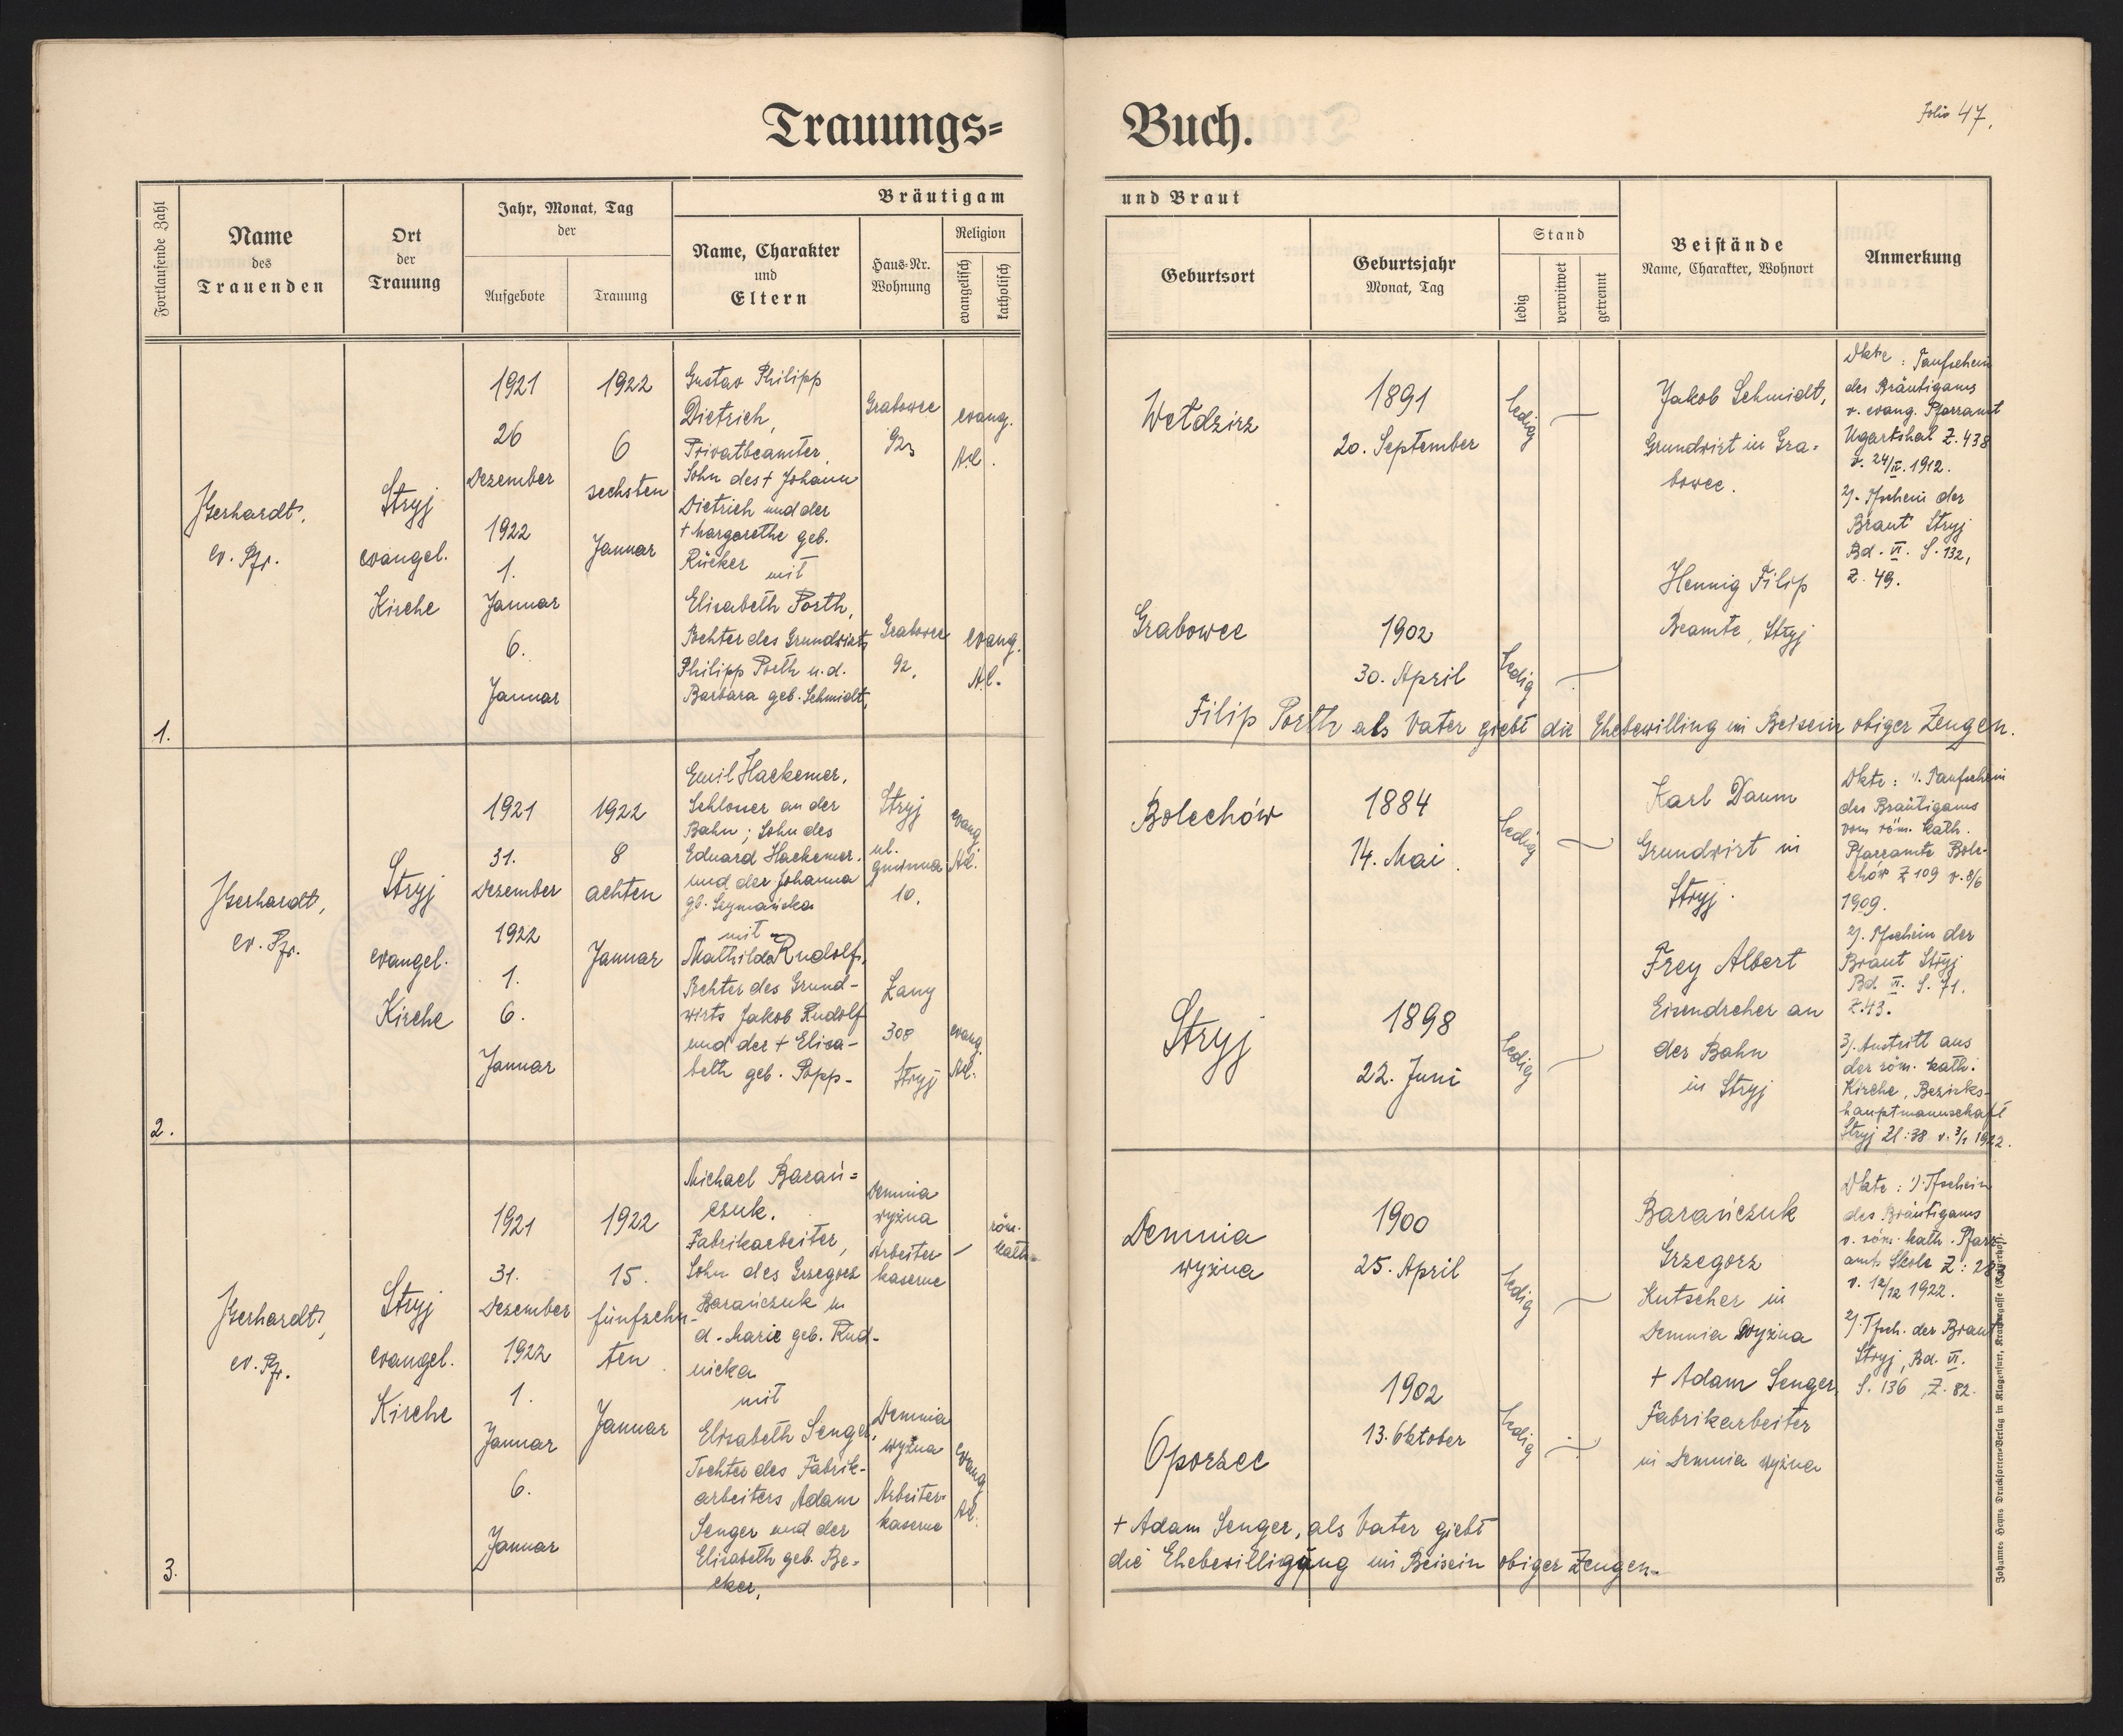 Trauungs=
Buch.
Folio 47.
Fortlaufende Zahl
Name
des
Trauenden
Ort
der
Trauung
Jahr, Monat, Tag
der
Aufgebote
Trauung
Bräutigam
Name, Charakter
und
Eltern
Haus-Nr.
Wohnung
Religion
evangelisch
katholisch
und Braut
Geburtsort
Geburtsjahr
Monat, Tag
Stand
ledig
verwitwet
getrennt
Beistände
Name, Charakter, Wohnort
Anmerkung
1.
ev. Pfr.
Stryj
evangel.
Kirche
1921
26
Dezember
1922
1.
Januar
6.
Januar
1922
6
sechsten
Januar
Gustav Philipp
Dietrich,
Privatbeamter,
Sohn des + Johann
Dietrich und der
+ Margarethe geb.
Rücker mit
Elisabeth Porth,
Tochter des Grundwirts
Philipp Porth u. d.
Barbara geb. Schmidt,
Grabowce
evang.
A.C.
Grabowce
92.
evang.
A.C.
Wełdzirz
1891
20. September
ledig
Grabowce
1902
30. April
ledig
Jakob Schmidt,
Grundwirt in Gra-
bowce.
Hennig Filip
Beamte, Stryj
Dkte: Taufschein
des Bräutigams
v. evang. Pfarramt
Ugartsthal Z. 438
1912.
2). Tfschein der
Braut Stryj
Bd. VI. S. 132,
Z. 49.
Filip Porth als Vater giebt die Ehebewilling im Beisein obiger Zeugen.
2.
ev. Pfr.
Stryj
evangel.
Kirche
1921
31.
Dezember
1922
1.
6.
Januar
1922
8
achten
Januar
Emil Hackemer,
Schlosser an der
Bahn; Sohn des
Eduard Hackemer.
und der Johanna
mit
Mathilda Rudolf,
Tochter des Grund-
wirts Jakob Rudolf
und der + Elisa-
beth geb. Popp-
Stryj
ul.
gminna
10.
evang
A.C.
Łany
308
Stryj
evang.
A.C.
Bolechów
1884
14. Mai.
ledig
Stryj
1898
22. Juni
ledig
Karl Daum
Grundwirt in
Stryj.
Frey Albert
Eisendreher an
der Bahn
in Stryj
Dkte: 1). Taufschein
des Bräutigams
vom röm. kath.
Pfarramte Bole-
chów Z 109 v. 8/6
1909.
2). Tfschein der
Braut Stryj
Bd. VI. S. 71.
Z. 43.
3). Austritt aus
der röm. kath.
Kirche, Bezirks-
hauptmannschaft
Stryj Zl: 38 v. 3/1 1922.
3.
ev. Pfr.
Stryj
evangel.
Kirche
1921
31.
Dezember
1922
1.
Januar
6.
Januar
1922
15.
fünfzehn-
ten
Januar
Michael Barań=
czuk.
Fabrikarbeiter,
Sohn des Grzegorz
Barańczuk u
d. Marie geb. Rud-
nicka
mit
Elisabeth Senger,
Tochter des Fabrik-
arbeiters Adam
Senger und der
Elisabeth geb. Be-
cker,
Demnia
wyżna
Arbeiter
kaserne
–
röm.
kath.
Demnia
wyżna
Arbeiter-
kaserne
evang
A.C.
Demnia
wyżna
1900
25. April
ledig
Oporzec
1902
13. Oktober
ledig
Barańczuk
Grzegorz
Kutscher in
Demnia Wyżna
+ Adam Senger,
Fabrikarbeiter
in Demnia wyżna
Dkte: 1). Tfschein
des Bräutigams
v. röm. kath. Pfarr
amt Skole
1922.
2). Tfsch. der Braut
Stryj, Bd. VI.
S. 136, Z. 82.
+ Adam Senger, als Vater giebt
die Ehebewilligung im Beisein obiger Zeugen.